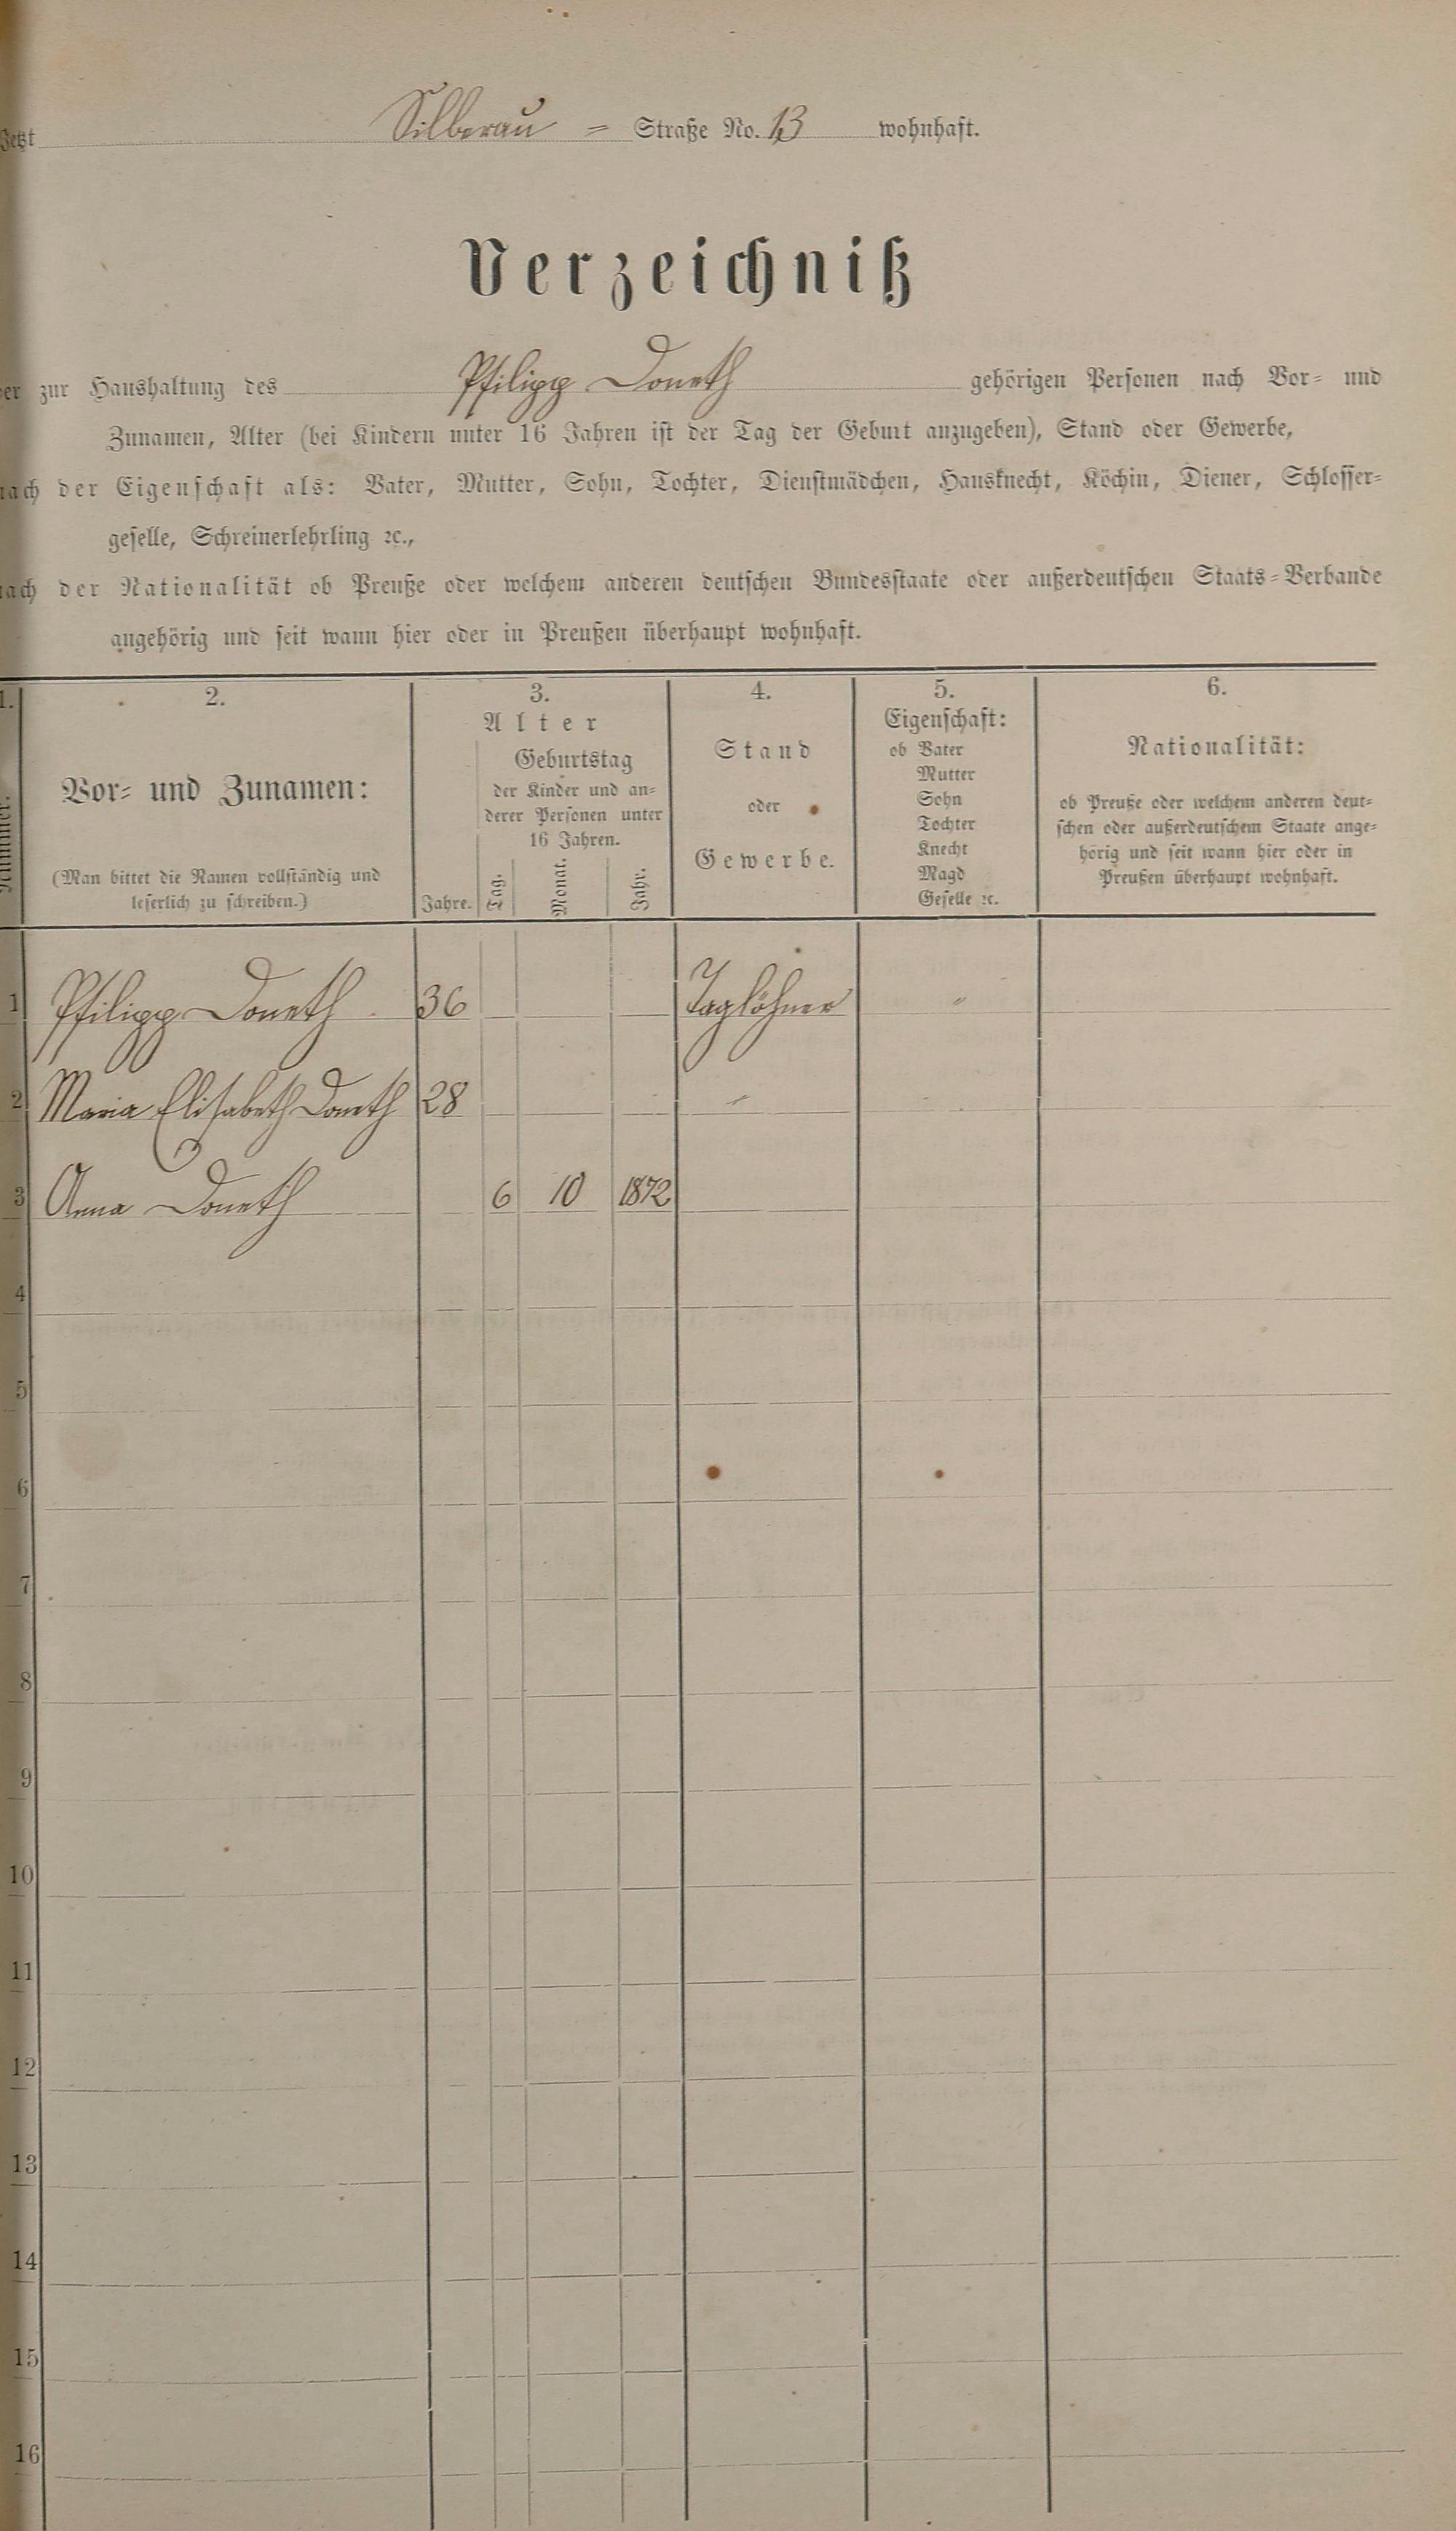 Jetzt Silberau = Straße No. 13 wohnhaft.
Verzeichniß
der zur Haushaltung des Philipp Doneth gehörigen Personen nach Vor- und
Zunamen, Alter (bei Kindern unter 16 Jahren ist der Tag der Geburt anzugeben), Stand oder Gewerbe,
nach der Eigenschaft als: Vater, Mutter, Sohn, Tochter, Dienstmädchen, Hausknecht, Köchin, Diener, Schlosser-
geselle, Schreinerlehrling ꝛc.,
nach der Nationalität ob Preuße oder welchem anderen deutschen Bundesstaate oder außerdeutschen Staats-Verbande
angehörig und seit wann hier oder in Preußen überhaupt wohnhaft.
1.
Nummer.
2.
Vor- und Zunamen:
(Man bittet die Namen vollständig und
leserlich zu schreiben.)
3.
Alter
Geburtstag
der Kinder und an-
derer Personen unter
16 Jahren.
Jahre. Tag. Monat. Jahr.
4.
Stand
oder
Gewerbe.
5.
Eigenschaft:
ob Vater
Mutter
Sohn
Tochter
Knecht
Magd
Geselle ꝛc.
6.
Nationalität:
ob Preuße oder welchem anderen deut-
schen oder außerdeutschem Staate ange-
hörig und seit wann hier oder in
Preußen überhaupt wohnhaft.
1 Philipp Doneth 36 Taglöhner "
2 Maria Elisabeth Doneth 28 "
3 Anna Doneth 6 10 1872
4
5
6
7
8
9
10
11
12
13
14
15
16